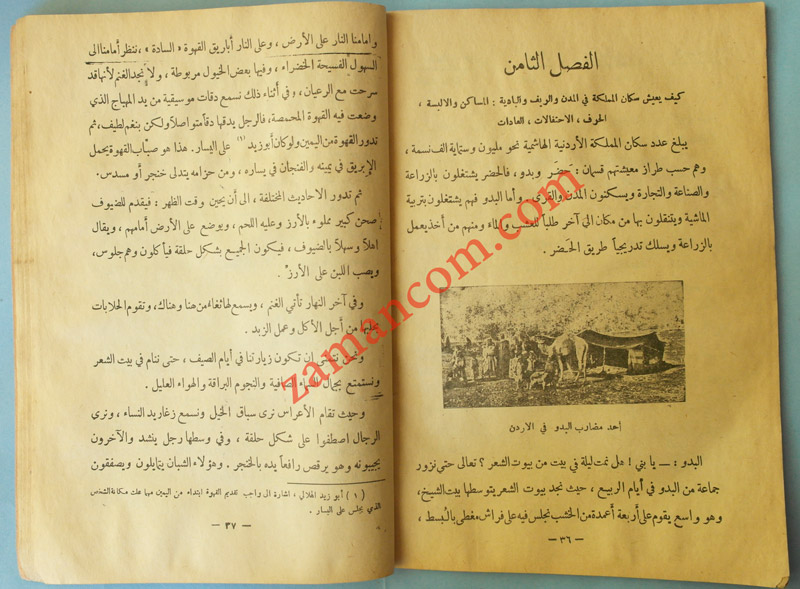 الفصل الثامن
كيف يعيش سكان المملكة في المدن والريف والبادية : المساكن والالبسة ،
الحرف ، الاحتفالات ، العادات
يبلغ عدد سكان المملكة الأردنية الهاشمية نحو مليون وستماية الف نسمة ،
وهم حسب طراز معيشتهم قسمان : حَضَر وبدو ، فالحضر يشتغلون بالزراعة
والصناعة والتجارة ويسكنون المدن والقرى . وأما البدو فهم يشتغلون بتربية
الماشية ويتنقلون بها من مكان الى آخر طلباً للعشب والماء ومنهم من أخذ يعمل
بالزراعة ويسلك تدريجياً طريق الحَضر .
أحد مضارب البدو في الاردن
البدو : — يا بني ! هل نمت ليلة في بيت من بيوت الشعر ؟ تعالى حتى نزور
جماعة من البدو في أيام الربيع ، حيث نجد بيوت الشعر يتوسطها بيت الشيخ ،
وهو واسع يقوم على أربعة أعمدة من الخشب نجلس فيه على فراش مغطى بالبسط ،
— ٣٦ —
وامامنا النار على الأرض ، وعلى النار أباريق القهوة « السادة » ، ننظر أمامنا الى
السهول الفسيحة الخضراء ، وفيها بعض الخيول مربوطة ، ولا نجد الغنم لأنها قد
سرحت مع الرعيان ، وفي أثناء ذلك نسمع دقات موسيقية من يد المهباج الذي
وضعت فيه القهوة المحمصة، فالرجل يدقها دقاً متواصلاً ولكن بنغم لطيف، ثم
تدور القهوة من اليمين ولو كان أبو زيد (١) على اليسار . هذا هو صبّاب القهوة يحمل
الإبريق في يمينه والفنجان في يساره ، ومن حزامه يتدلى خنجر أو مسدس .
ثم تدور الاحاديث المختلفة ، الى أن يحين وقت الظهر : فيقدم للضيوف
صحن كبير مملوء بالأرز وعليه اللحم ، ويوضع على الأرض أمامهم ، ويقال
اهلاً وسهلاً بالضيوف ، فيكون الجميع بشكل حلقة فيأكلون وهم جلوس ،
ويصب اللبن على الأرز .
وفي آخر النهار تأتي الغنم ، ويسمع لها ثغاء من هنا وهناك، وتقوم الحلابات
بحلبها من أجل الأكل وعمل الزبد .
ونحن نشتهي ان تكون زيارتنا في أيام الصيف ، حتى ننام في بيت الشعر
ونستمتع بجمال السماء الصافية والنجوم البراقة والهواء العليل .
وحيث تقام الأعراس نرى سباق الخيل ونسمع زغاريد النساء ، ونرى
الرجال اصطفوا على شكل حلقة ، وفي وسطها رجل ينشد والآخرون
يجيبونه وهو يرقص رافعاً يده بالخنجر . وهؤلاء الشبان يتمايلون ويصفقون
( ١ ) أبو زيد الهلالي ، اشارة الى واجب تقديم القهوة ابتداء من اليمين مهما علت مكانة الشخص
الذي يجلس على اليسار .
— ٣٧ —
zamancom.com